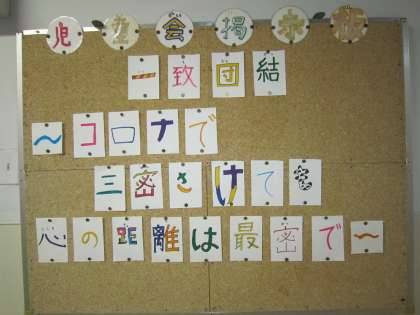 児童会掲示板
一致団結
～コロナで
三密さけても
心の距離は最密で～